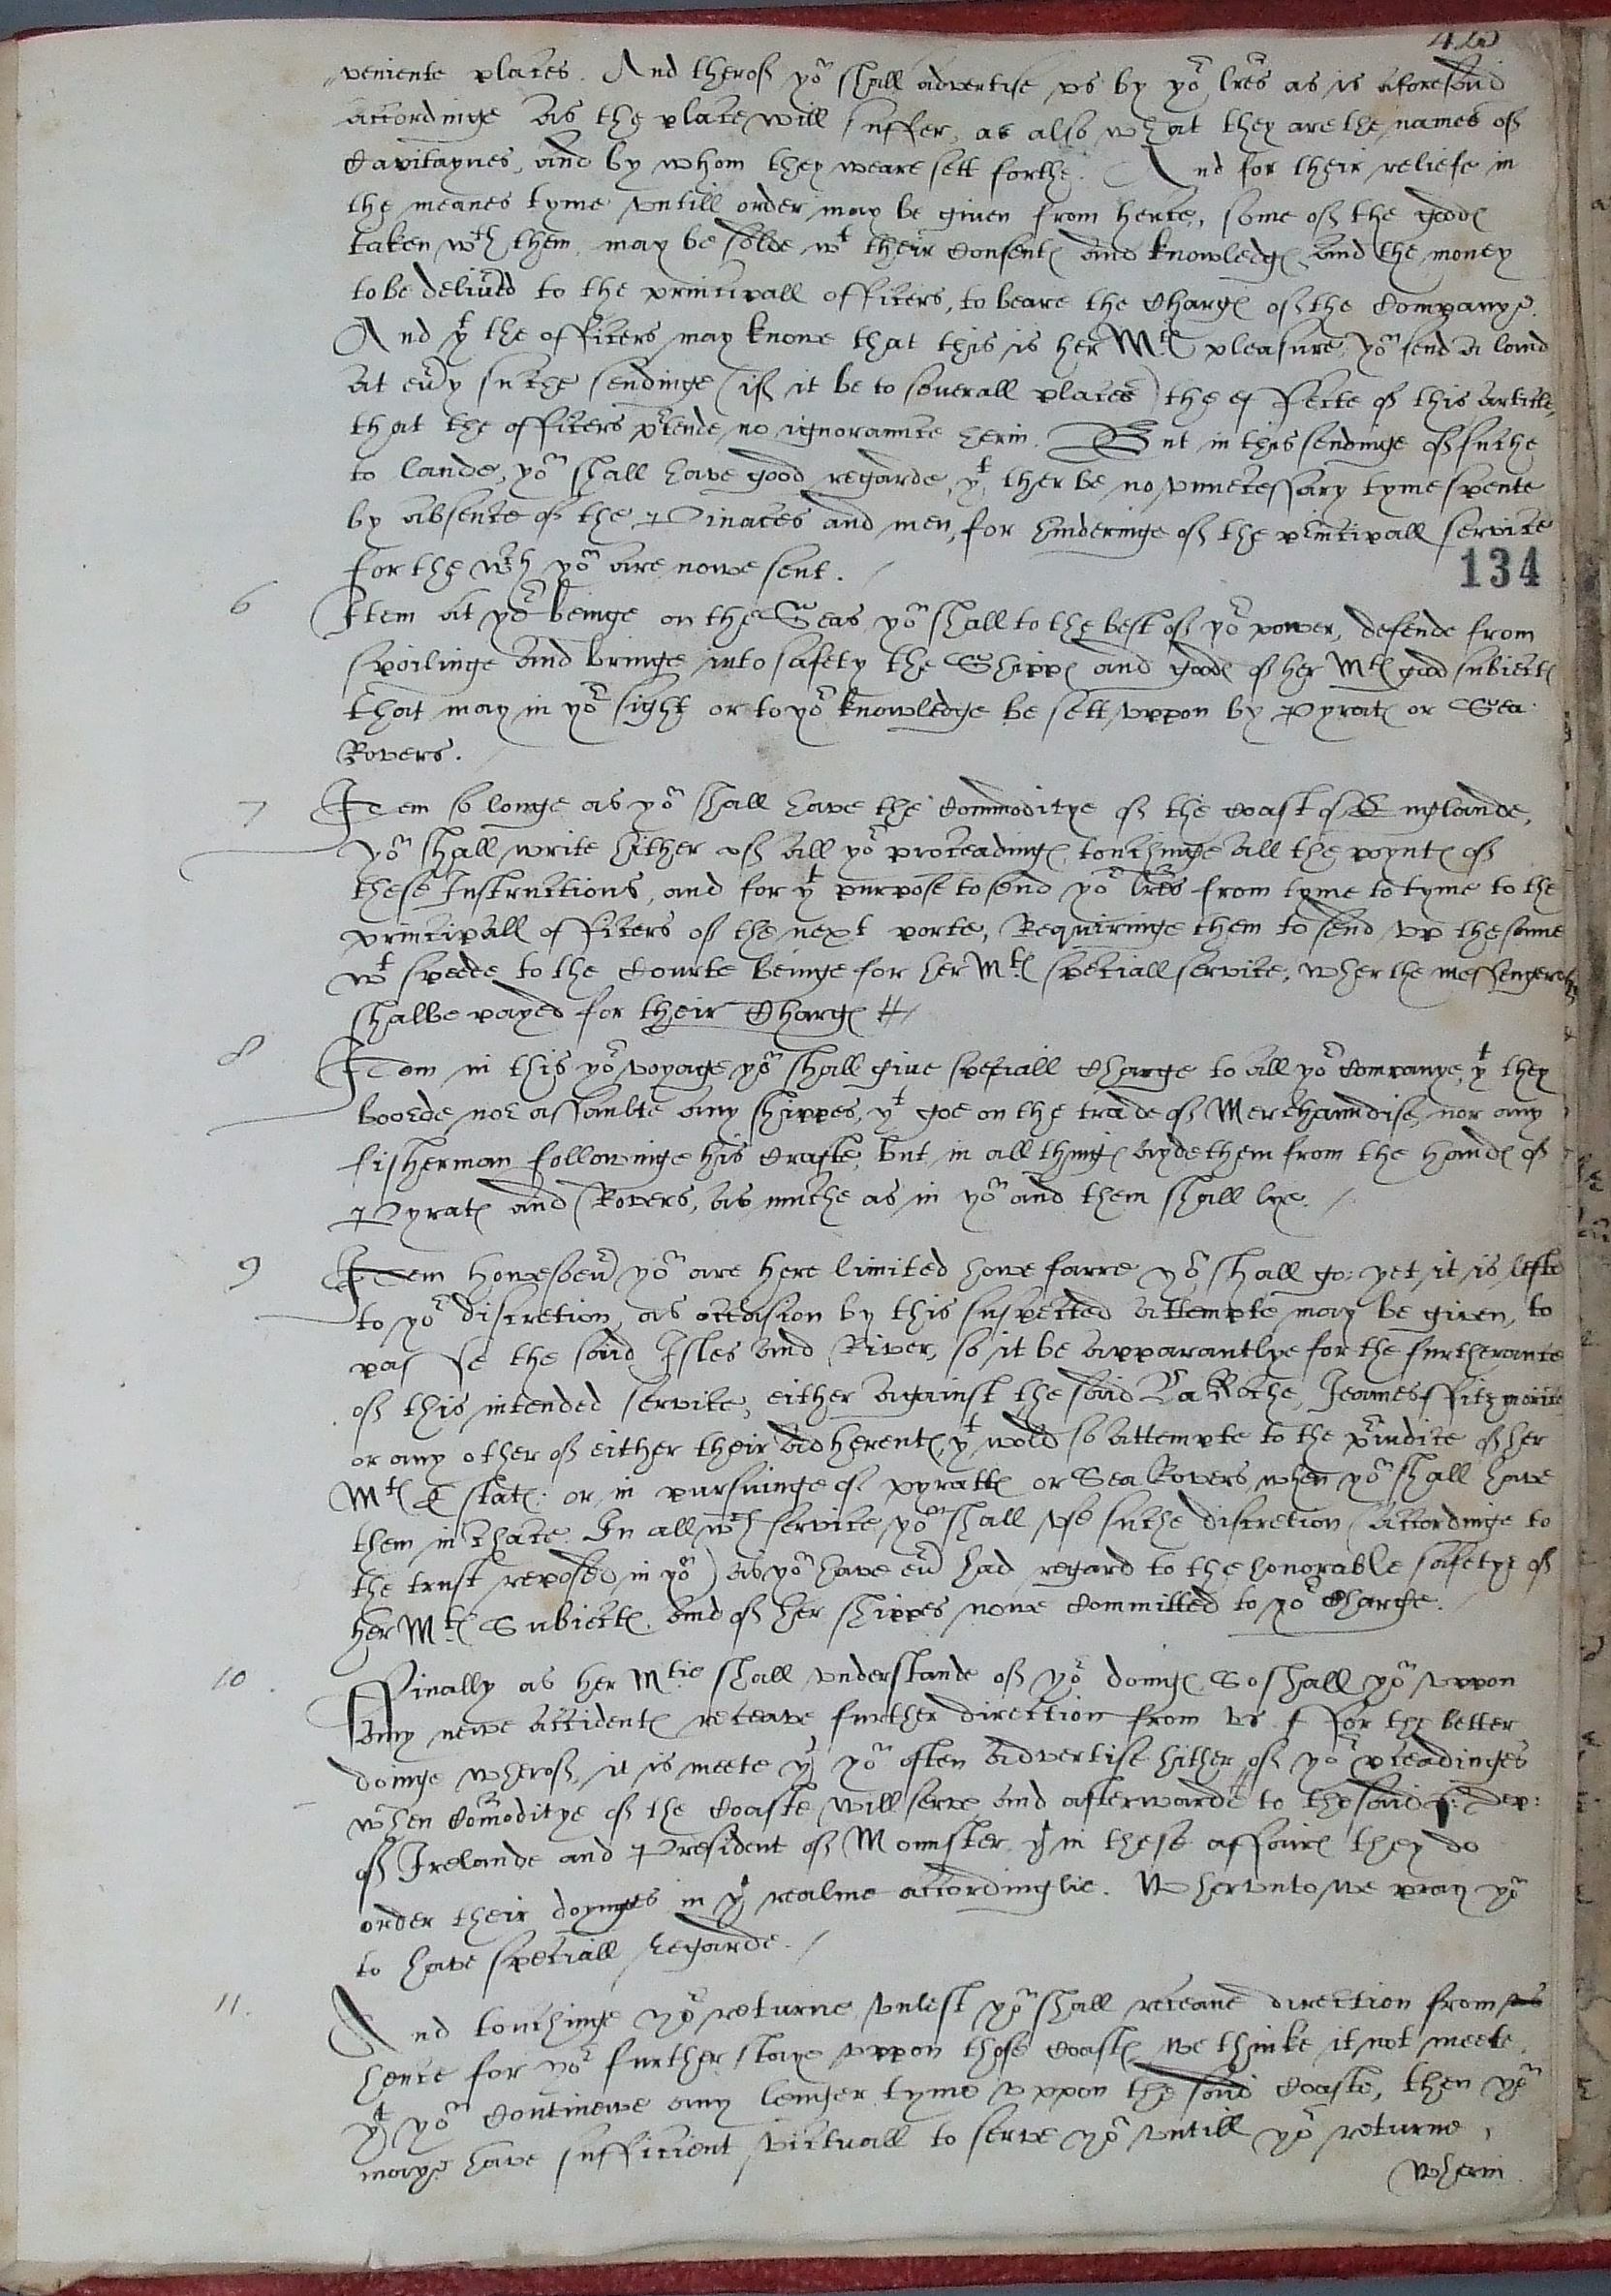 veniente places. And therof yoᵘ shall advertise vs by yoʳ lr̃es as is aforesaid
accordinge as the place will suffer, as also what they are the names of
Capitaynes, and by whom they weare sett forthe. And for their reliefe in
the meanes tyme vntill order may be given from hence, some of the good℮
taken wᵗʰ them, may be solde wᵗ their Consent℮ and knowledg℮ and the money
to be deliũed to the principall officers, to beare the Charg℮ of the Companye.
And yᵗ the officers may knowe that this is her Mᵗ℮ pleasure, yoᵘ send a land
at eũy suche sendinge (if it be to severall places) the effecte of this article,
that the officers p̃tende no ignoraunce herin. But in this sendinge of suche
to lande, yoᵘ shall have good regarde, yᵗ ther be no vnnecessary tyme spente
by absence of the Pinaces and men, for hinderinge of the p̃ncipall service
for the wᶜʰ yoᵘ are nowe sent.
134
6 Item at yoʳ beinge on the Seas yoᵘ shall to the best of yoʳ power, defende from
spoilinge and bringe into safety the Shipp℮ and good℮ of her Mᵗ℮ good subiect℮
that may in yoʳ sight or to yoʳ knowledge be sett vppon by Pyrat℮ or Sea
Rovers.
7 Item so longe as yoᵘ shall have the Commoditye of the Coast of Englande,
yoᵘ shall write hither of all yoʳ proceading℮ touchinge all the poynt℮ of
these Instructions, and for yᵗ purpose to send yoʳ lr̃es from tyme to tyme to the
principall officers of the next porte, Requiringe them to send vp the same
wᵗ speede to the Courte beinge for her Mᵗ℮ speciall service, wher the messengers
shalbe payed for their Charg℮
8 Item in this yoʳ voyage yoᵘ shall give speciall Charge to all yoʳ Companye, yᵗ they
boorde nor assaulte any shippes, yᵗ goe on the trade of Merchaundise, nor any
fisherman followinge his Crafte, but in all thing℮ ayde them from the hand℮ of
Pyrat℮ and Rovers, as muche as in yoᵘ and them shall lye.
9 Item howsoeũ yoᵘ are here limited howe farre yoᵘ shall go: yet it is lefte
to yoʳ discretion, as occasion by this suspected attempte may be given, to
passe the said Isles and River, so it be apparantlye for the furtherance
of this intended service, either against the said La Roche, Jeames ffitzmorice
or any other of either their adherent℮, yᵗ wold so attempte to the p̃iudice of her
Mᵗ℮ Estat℮: or in pursuinge of pyratt℮ or Sea Rovers, when yoᵘ shall have
them in Chace. In all wᶜʰ service yoᵘ shall vse suche discretion (accordinge to
the trust reposed in yoᵘ) as yoᵘ have eũ had regard to the honorable safetye of
her Mᵗ℮ Subiect℮ and of her shippes nowe Committed to yoʳ Charge.
10. Finally as her Mᵗⁱᵉ shall vnderstande of yoʳ doing℮ So shall yoᵘ vppon
any newe accident℮ receave further direction from vs. ffor the better
doinge wherof, it is meete yᵗ yoᵘ often advertise hither of yoʳ p̃ceadinges
when Com̃oditye of the Coaste will serve, and afterwarde to the said L: Dep:
of Irelande and President of Mounster, yᵗ in these affaire℮ they do
order their doynges in yᵗ realme accordinglie. Whervnto we pray yoᵘ
to have speciall regarde.
11. And touchinge yoʳ returne, vnlest yoᵘ shall receave direction from vs
hence for yoʳ further staye vppon those Coast℮, we thinke it not meete
yᵗ yoᵘ Continewe any lenger tyme vppon the said Coaste, then yoᵘ
maye have sufficient victuall to serve yoᵘ vntill yoʳ returne,
wherin